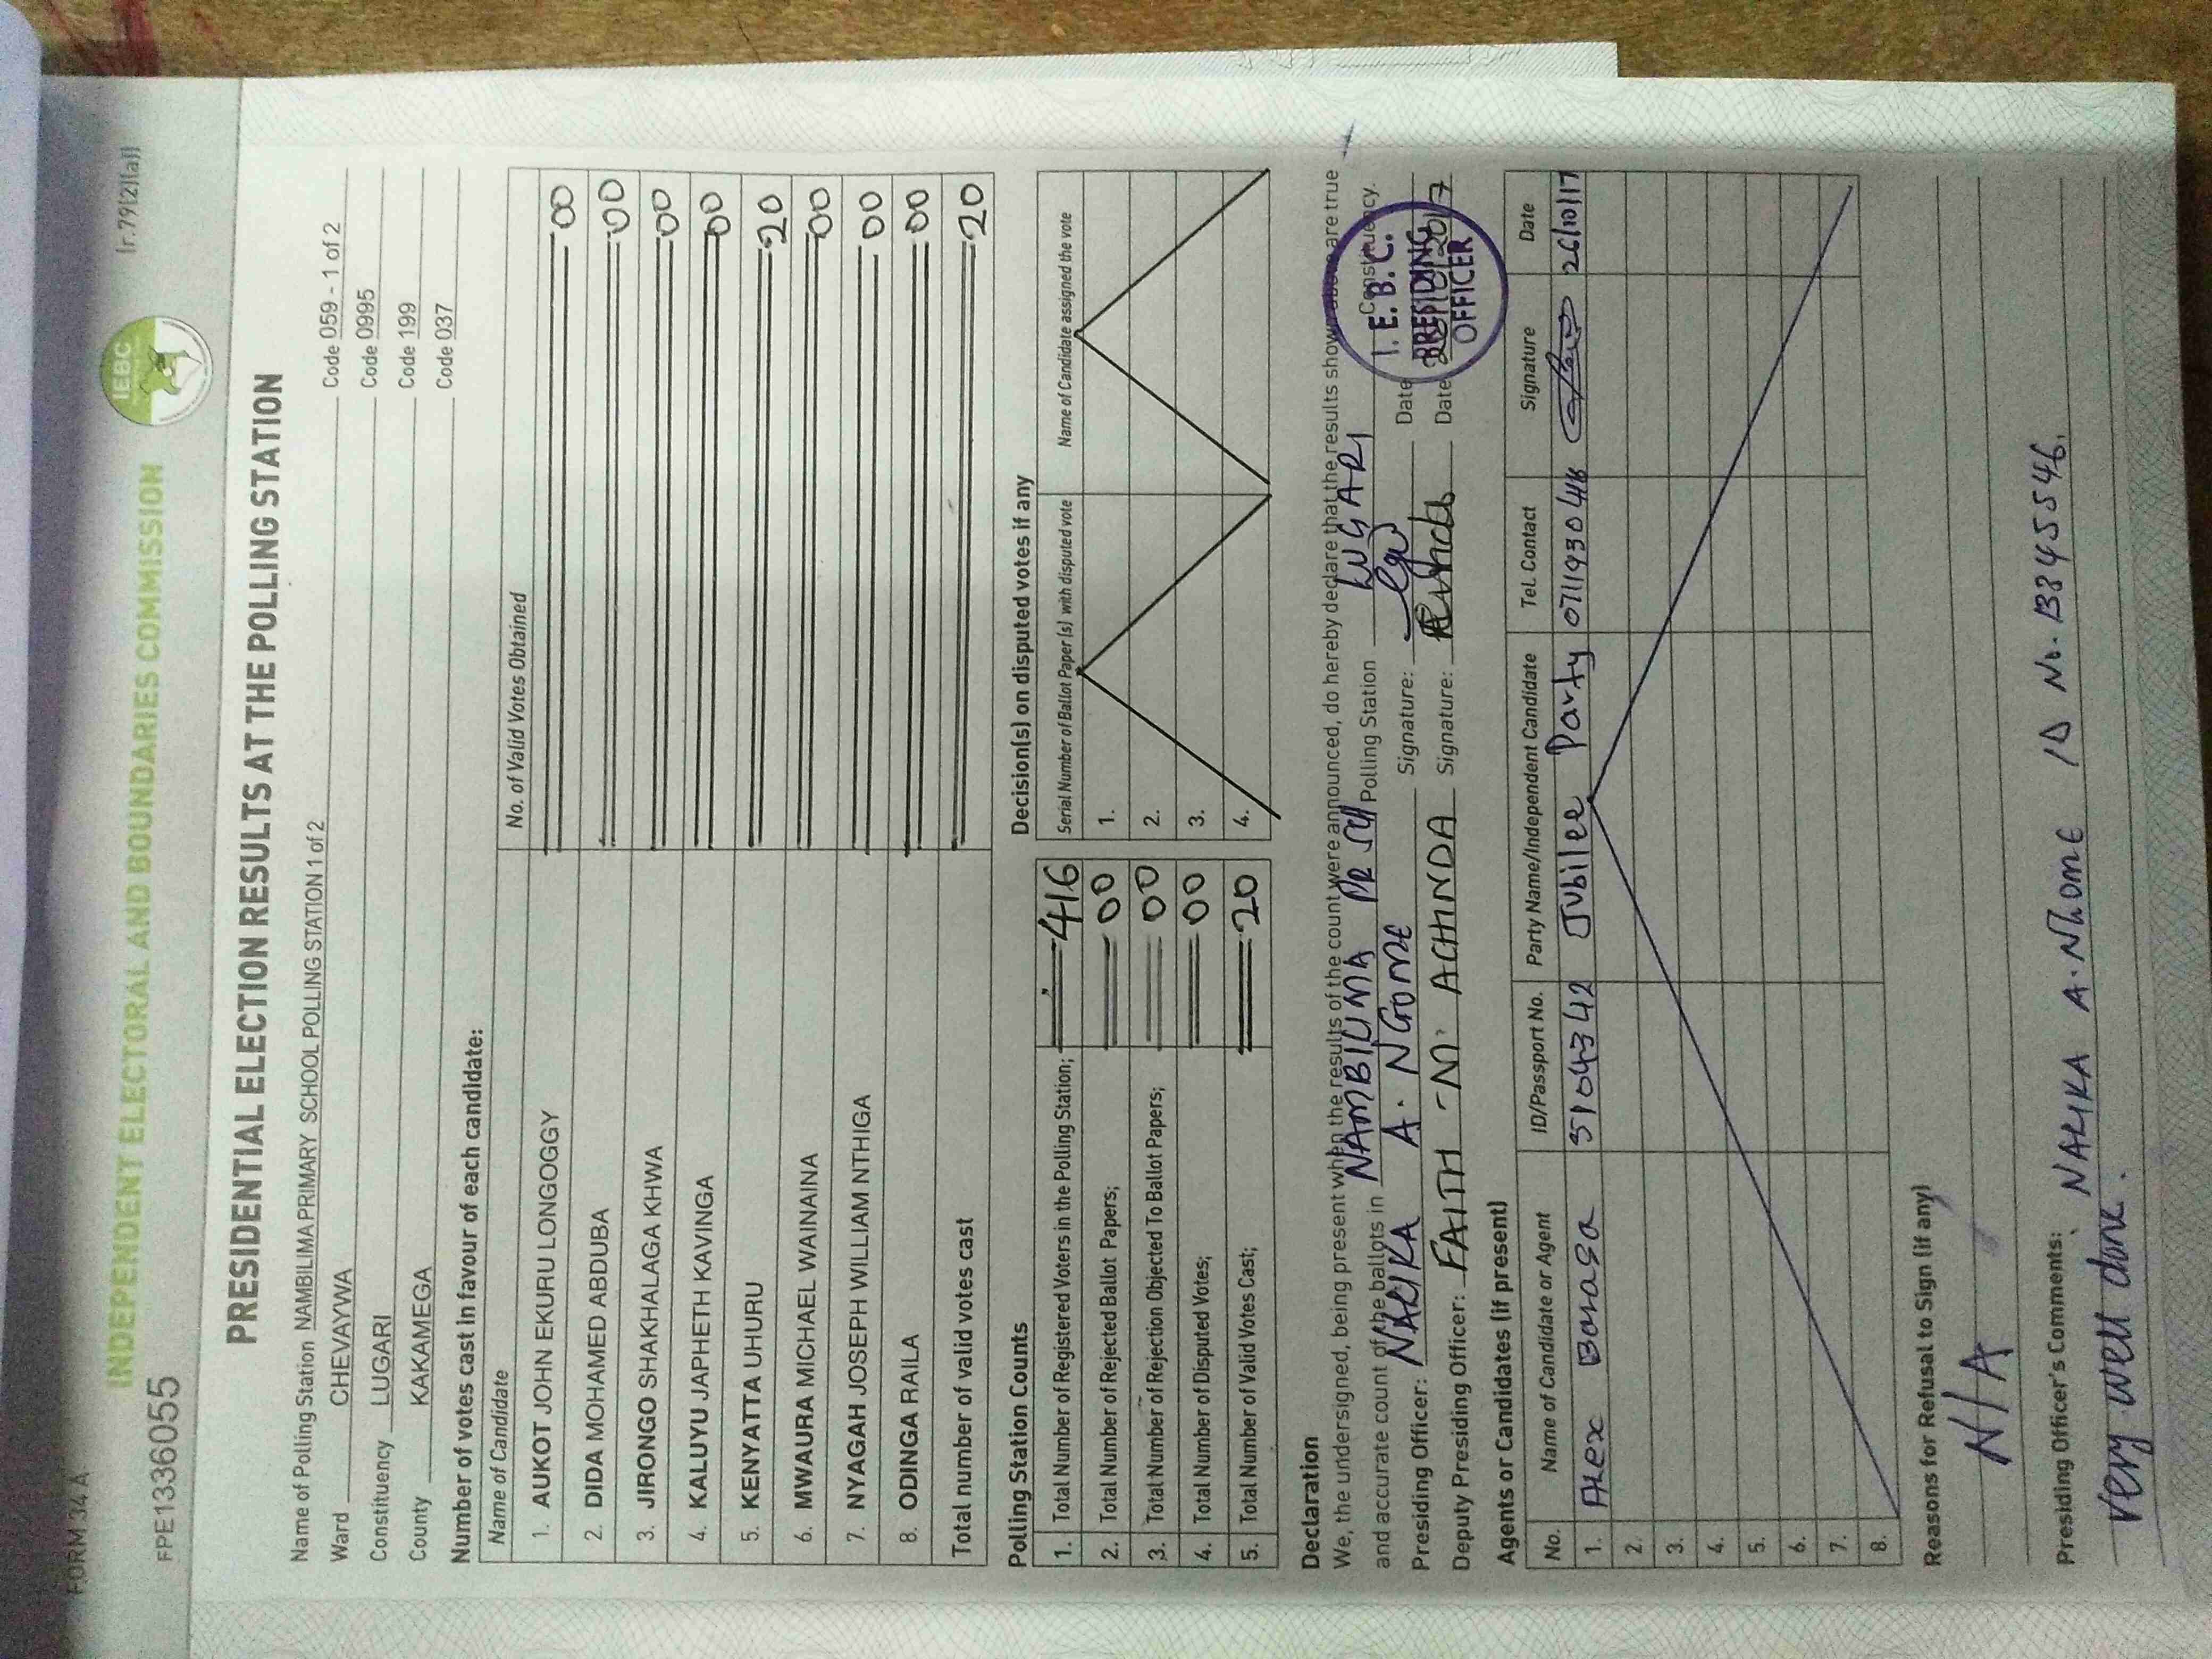 FORM 34 A
(r.79(2)(a))
INDEPENDENT ELECTORAL AND BOUNDARIES COMMISSION
IEBC
FPE1336055
PRESIDENTIAL ELECTION RESULTS AT THE POLLING STATION
Name of Polling Station NAMBILIMA PRIMARY SCHOOL POLLING STATION 1 of 2 Code 059 - 1 of 2
Ward CHEVAYWA Code 0995
Constituency LUGARI Code 199
County KAKAMEGA Code 037
Number of votes cast in favour of each candidate:
Name of Candidate No. of Valid Votes Obtained
1. AUKOT JOHN EKURU LONGOGGY 00
2. DIDA MOHAMED ABDUBA 00
3. JIRONGO SHAKHALAGA KHWA 00
4. KALUYU JAPHETH KAVINGA 00
5. KENYATTA UHURU 20
6. MWAURA MICHAEL WAINAINA 00
7. NYAGAH JOSEPH WILLIAM NTHIGA 00
8. ODINGA RAILA 00
Total number of valid votes cast 20
Polling Station Counts
1. Total Number of Registered Voters in the Polling Station; 416
2. Total Number of Rejected Ballot Papers; 00
3. Total Number of Rejection Objected To Ballot Papers; 00
4. Total Number of Disputed Votes; 00
5. Total Number of Valid Votes Cast; 20
Decision(s) on disputed votes if any
Serial Number of Ballot Paper (s) with disputed vote Name of Candidate assigned the vote
1.
2.
3.
4.
Declaration
We, the undersigned, being present when the results of the count were announced, do hereby declare that the results shown above are true
and accurate count of the ballots in NAMBILIMA PR SCH Polling Station LUGARI Constituency.
Presiding Officer: A. NGOME Signature: Date
Deputy Presiding Officer: FAITH Signature: Date 2017
I.E.B.C.
PRESIDING
OFFICER
Agents or Candidates (if present)
No. Name of Candidate or Agent ID/Passport No. Party Name/Independent Candidate Tel. Contact Signature Date
1. Barasa 31043412 Jubilee Party 26/10/17
2.
3.
4.
5.
6.
7.
8.
Reasons for Refusal to Sign (if any)
N/A
Presiding Officer's Comments: ID No. 13345546.
Very well done.